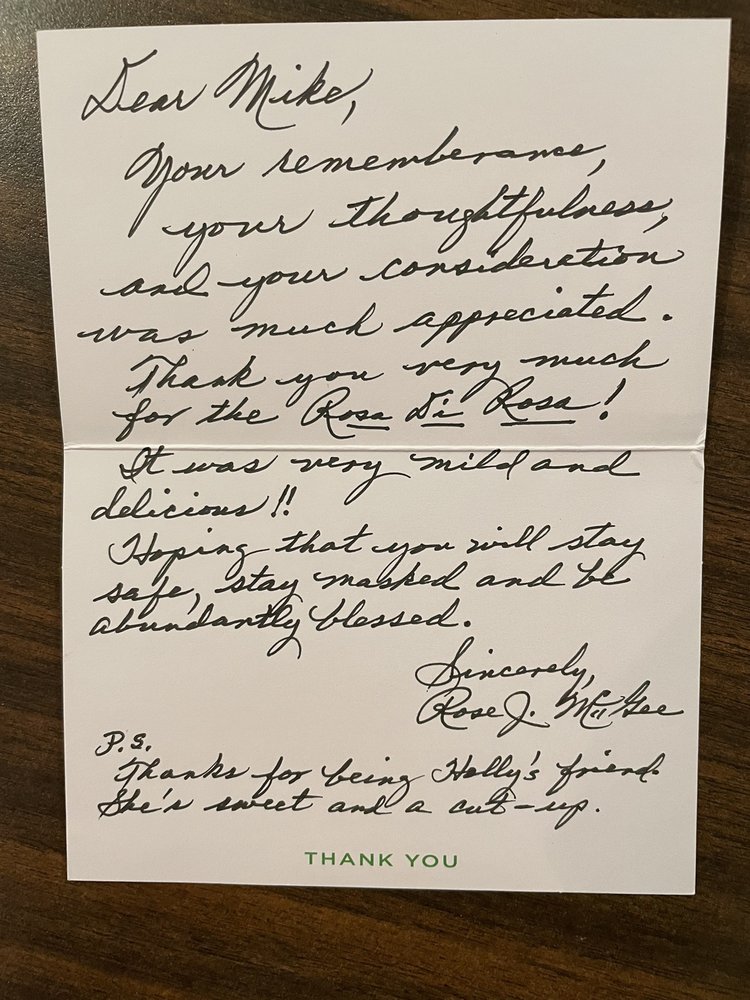 Dear Mike,
Your rememberance,
your thoughtfulness,
and your consideration
was much appreciated.
Thank you very much
for the Rosa Di Rosa!
It was very mild and
delicious!!
Hoping that you will stay
safe, stay masked and be
abundantly blessed.
Sincerely,
Rose J. McGee
P.S.
Thanks for being Holly's friend.
She's sweet and a cut-up.
THANK YOU